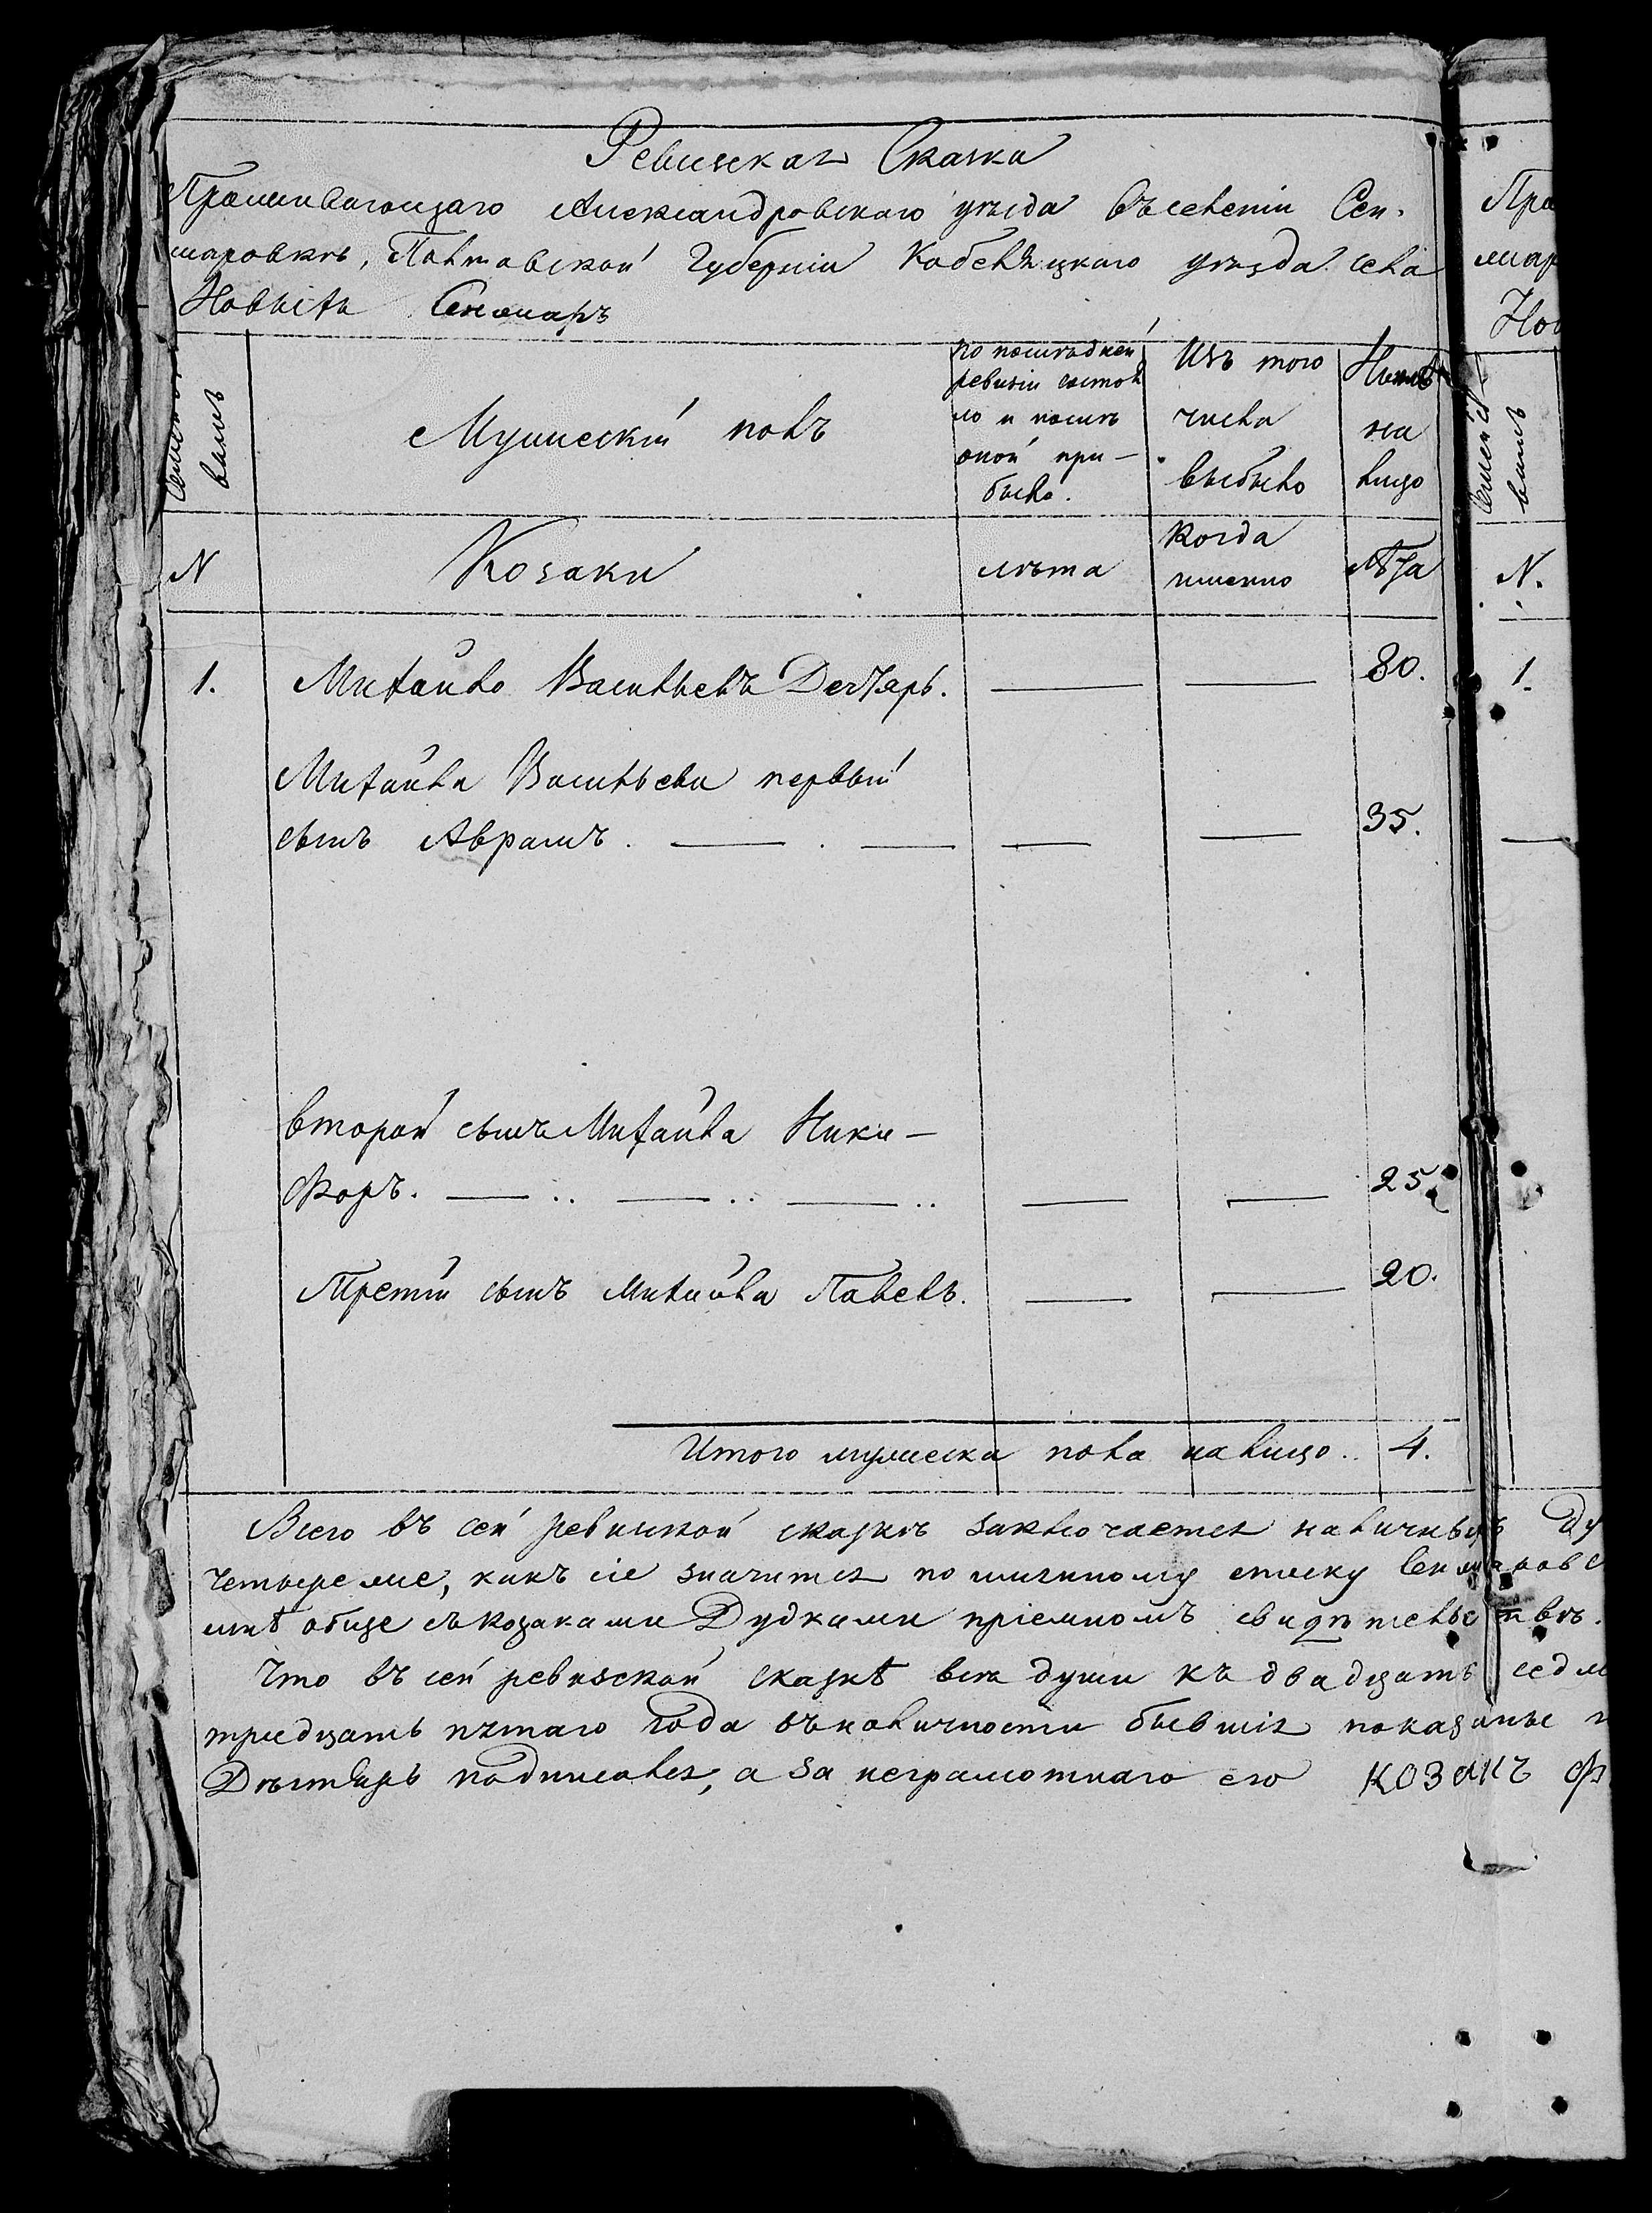 Ревизская Сказка
Проживающаго Александровскаго уѣзда въселеніи Сен-
жаровкѣ, Полтавской Губерніи Кобеляцкаго уѣзда села
Новыхъ Сенжаръ
вамъ
Мужескій полъ
по послѣдней
ревизіи состоя
ло и послѣ
оной при-
было.
Изъ того
числа
выбыло
Нынѣ
на
лицо
N
Козаки
лѣта
Когда
именно
Лѣта
1. Михайло Васильевъ Дегтярь. 80.
Михайла Васильева первый
сынъ Аврамъ. 35.
второй сынъ Михайла Ники-
форъ. 25.
Третій сынъ Михайла Павелъ. 20.
Итого мужеска пола налицо.. 4.
Всего въ сей ревизкой сказкѣ заключается наличныхъ Ду
четыре мне, какъ сіе значится по списку Сенжаров
обще съкозаками Дудками пріемномъ свидѣтельствѣ.
Что въ сей ревизской сказкѣ всѣ души къ двадцать седм
тридцать пятаго года въналичности бывшія показаные
Дѣгтярь подписался, а за неграмотнаго его козакъ
Про
жар
Нов
вамъ
N.
1.